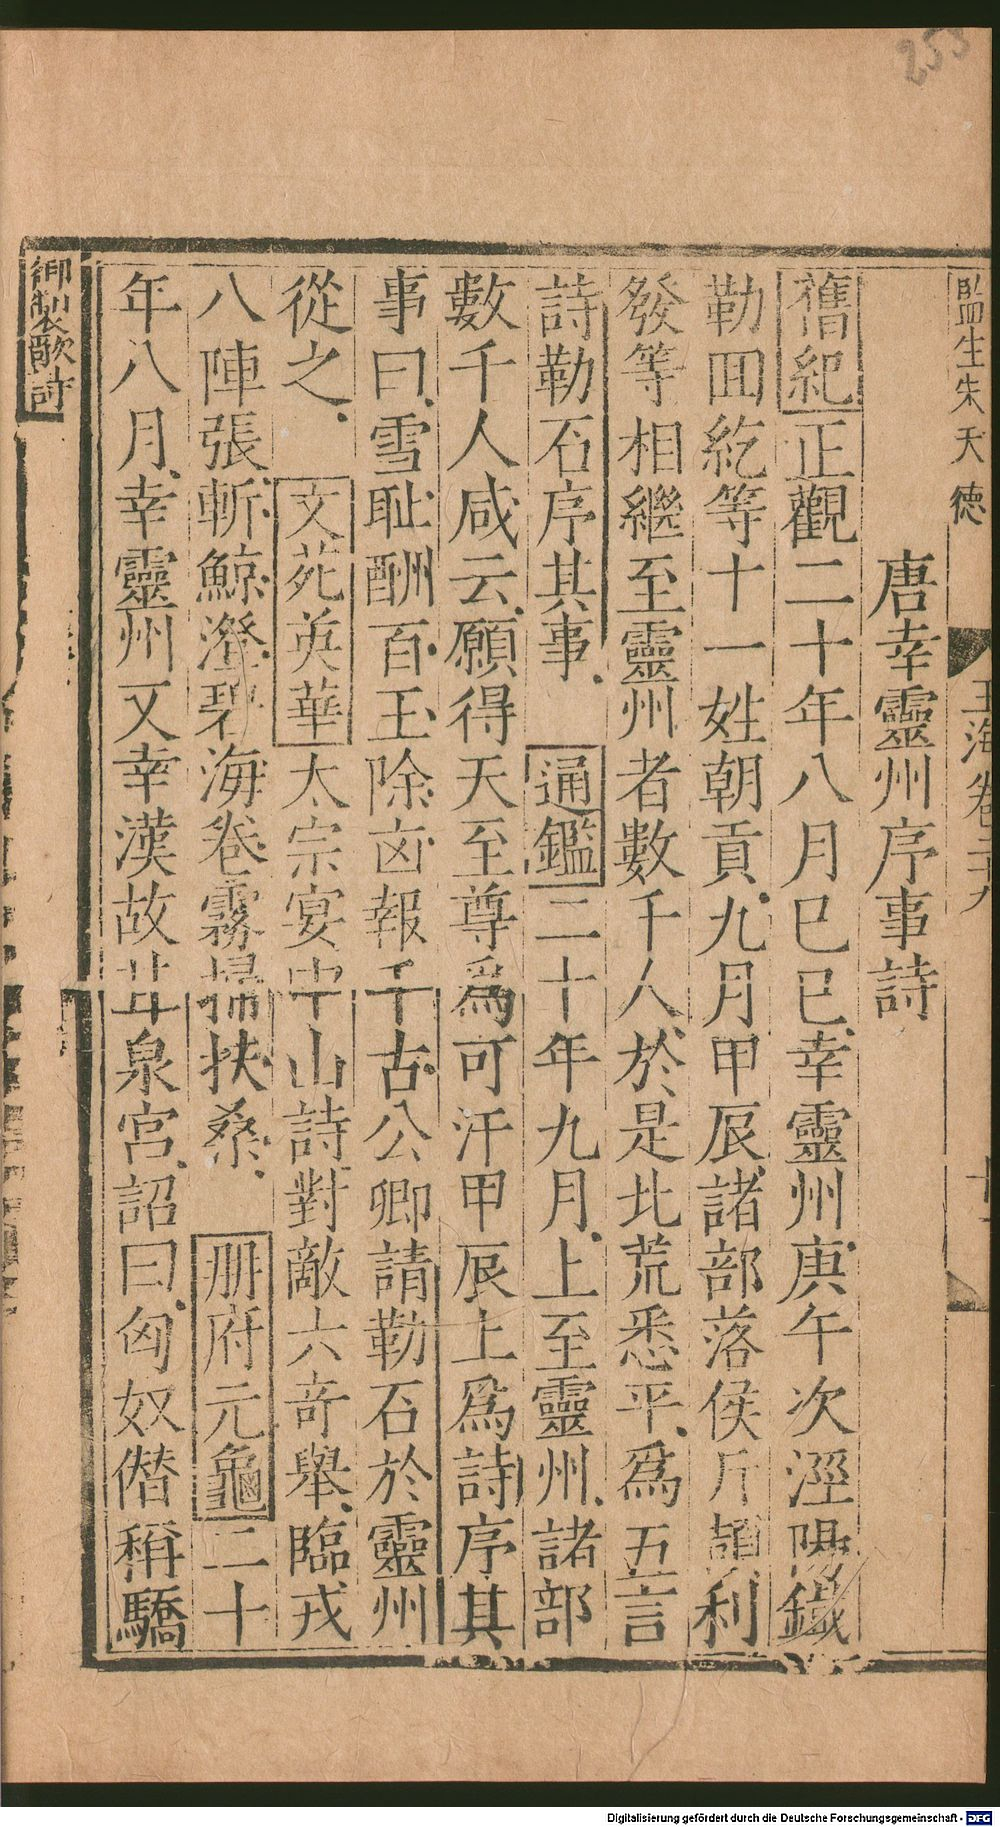 253
監生朱天德
玉海卷二十九
唐幸靈州序事詩
舊紀正觀二十年八月巳巳幸靈州庚午次涇陽鐵
勒回紇等十一姓朝貢九月甲辰諸部落俟斤頡利
發等相繼至靈州者數千人於是北荒悉平爲五言
詩勒石序其事通鑑二十年九月上至靈州諸部
數千人咸云願得天至尊爲可汗甲辰上爲詩序其
事曰雪耻酬百王除凶報千古公卿請勒石於靈州
從之文苑英華太宗宴中山詩對敵六奇舉臨戎
八陣張斬鯨澄碧海卷霧掃扶桑册府元龜二十
年八月幸靈州又幸漢故甘泉宮詔曰匈奴僭稱驕
御製歌詩
Digitalisierung gefördert durch die Deutsche Forschungsgemeinschaft - DFG